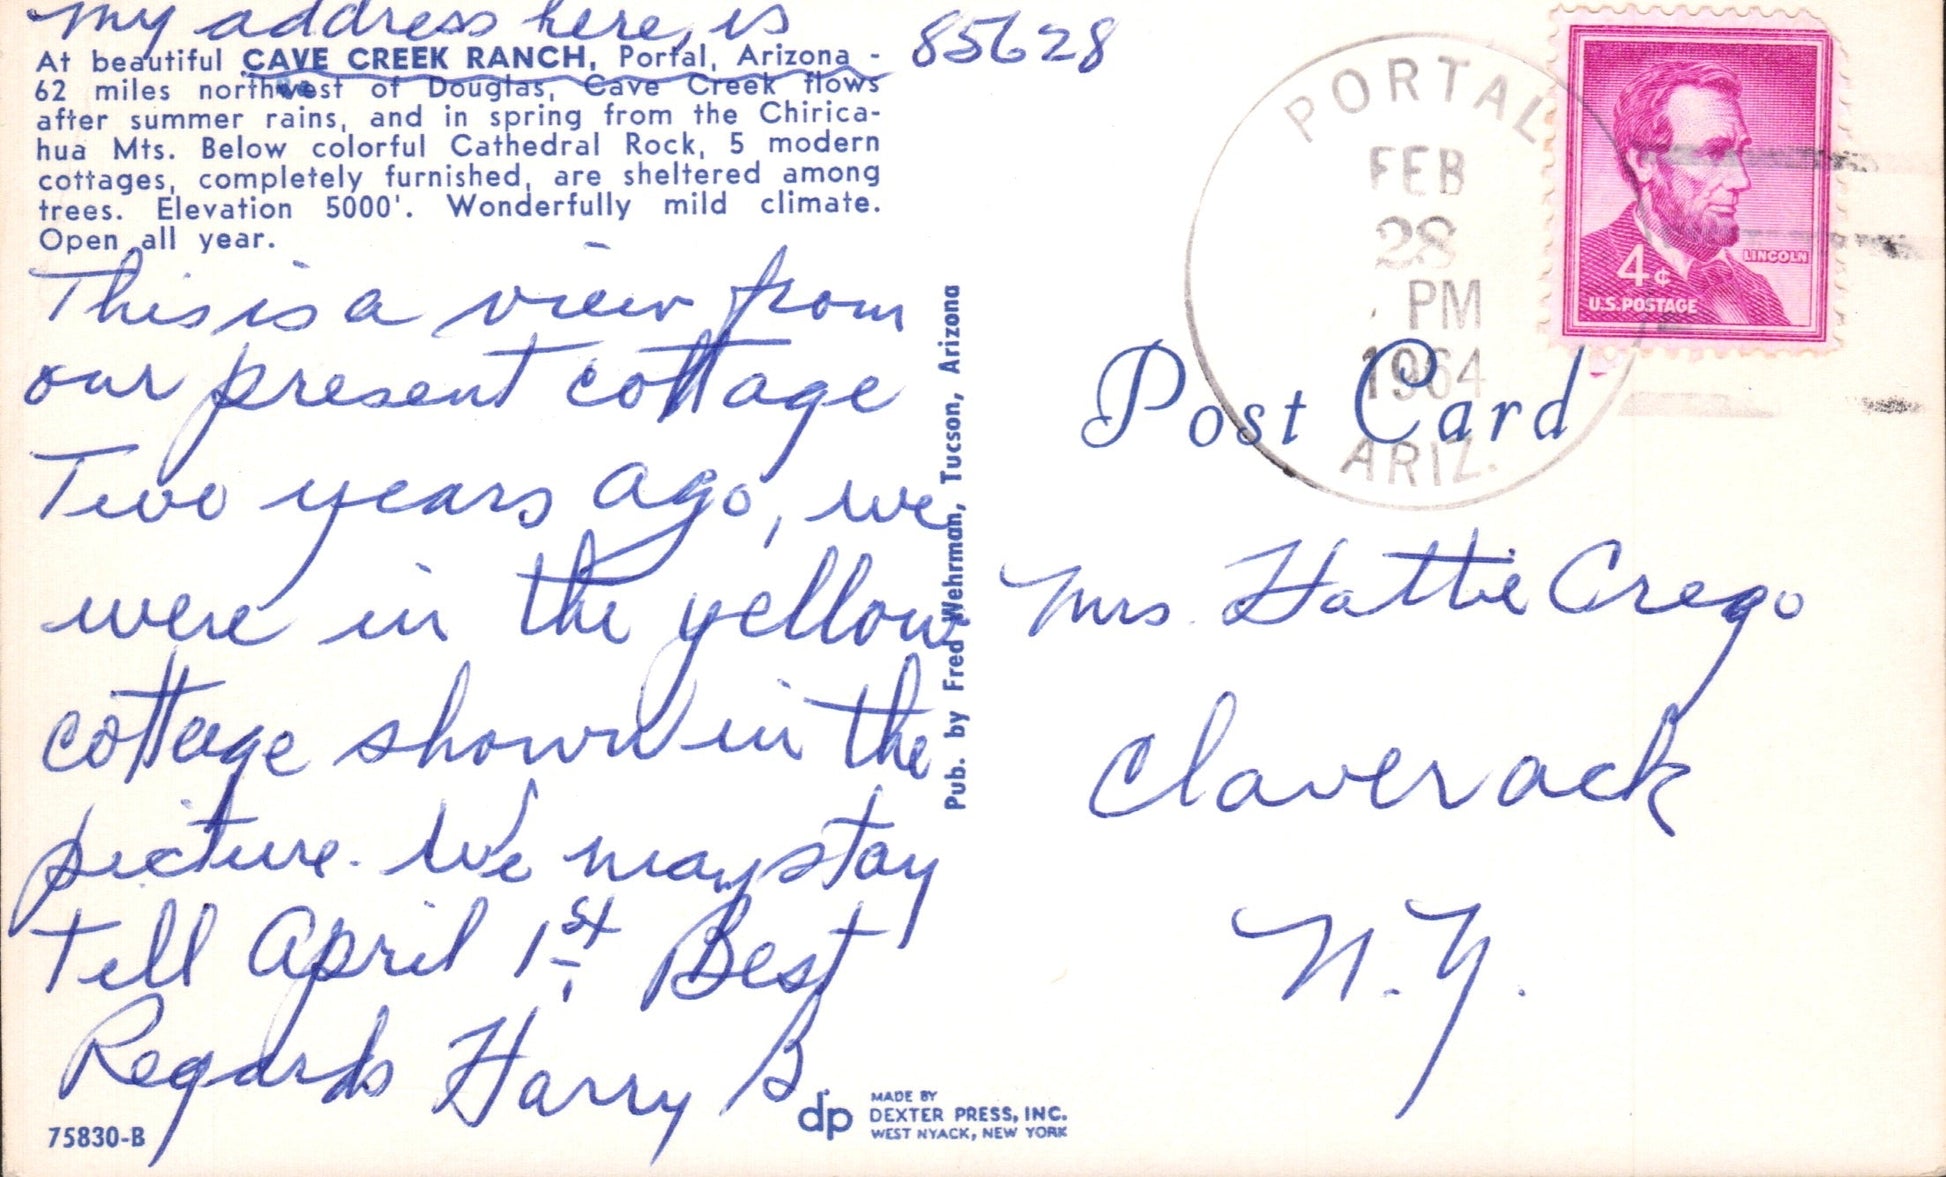 My address here is
85628
At beautiful CAVE CREEK RANCH, Portal, Arizona -
62 miles northwest of Douglas, Cave Creek flows
after summer rains, and in spring from the Chirica-
hua Mts. Below colorful Cathedral Rock, 5 modern
cottages, completely furnished, are sheltered among
trees. Elevation 5000'. Wonderfully mild climate.
Open all year.
This is a view from
our present cottage
Two years ago, we
were in the yellow
cottage shown in the
picture. We may stay
till April 1st. Best
Regards Harry B
75830-B
Pub. by Fred Wehrman, Tucson, Arizona
dp
MADE BY
DEXTER PRESS, INC.
WEST NYACK, NEW YORK
PORTAL
FEB
28
PM
1964
ARIZ.
LINCOLN
4¢
U.S. POSTAGE
Post Card
Mrs. Hattie Crego
Claverack
N.Y.